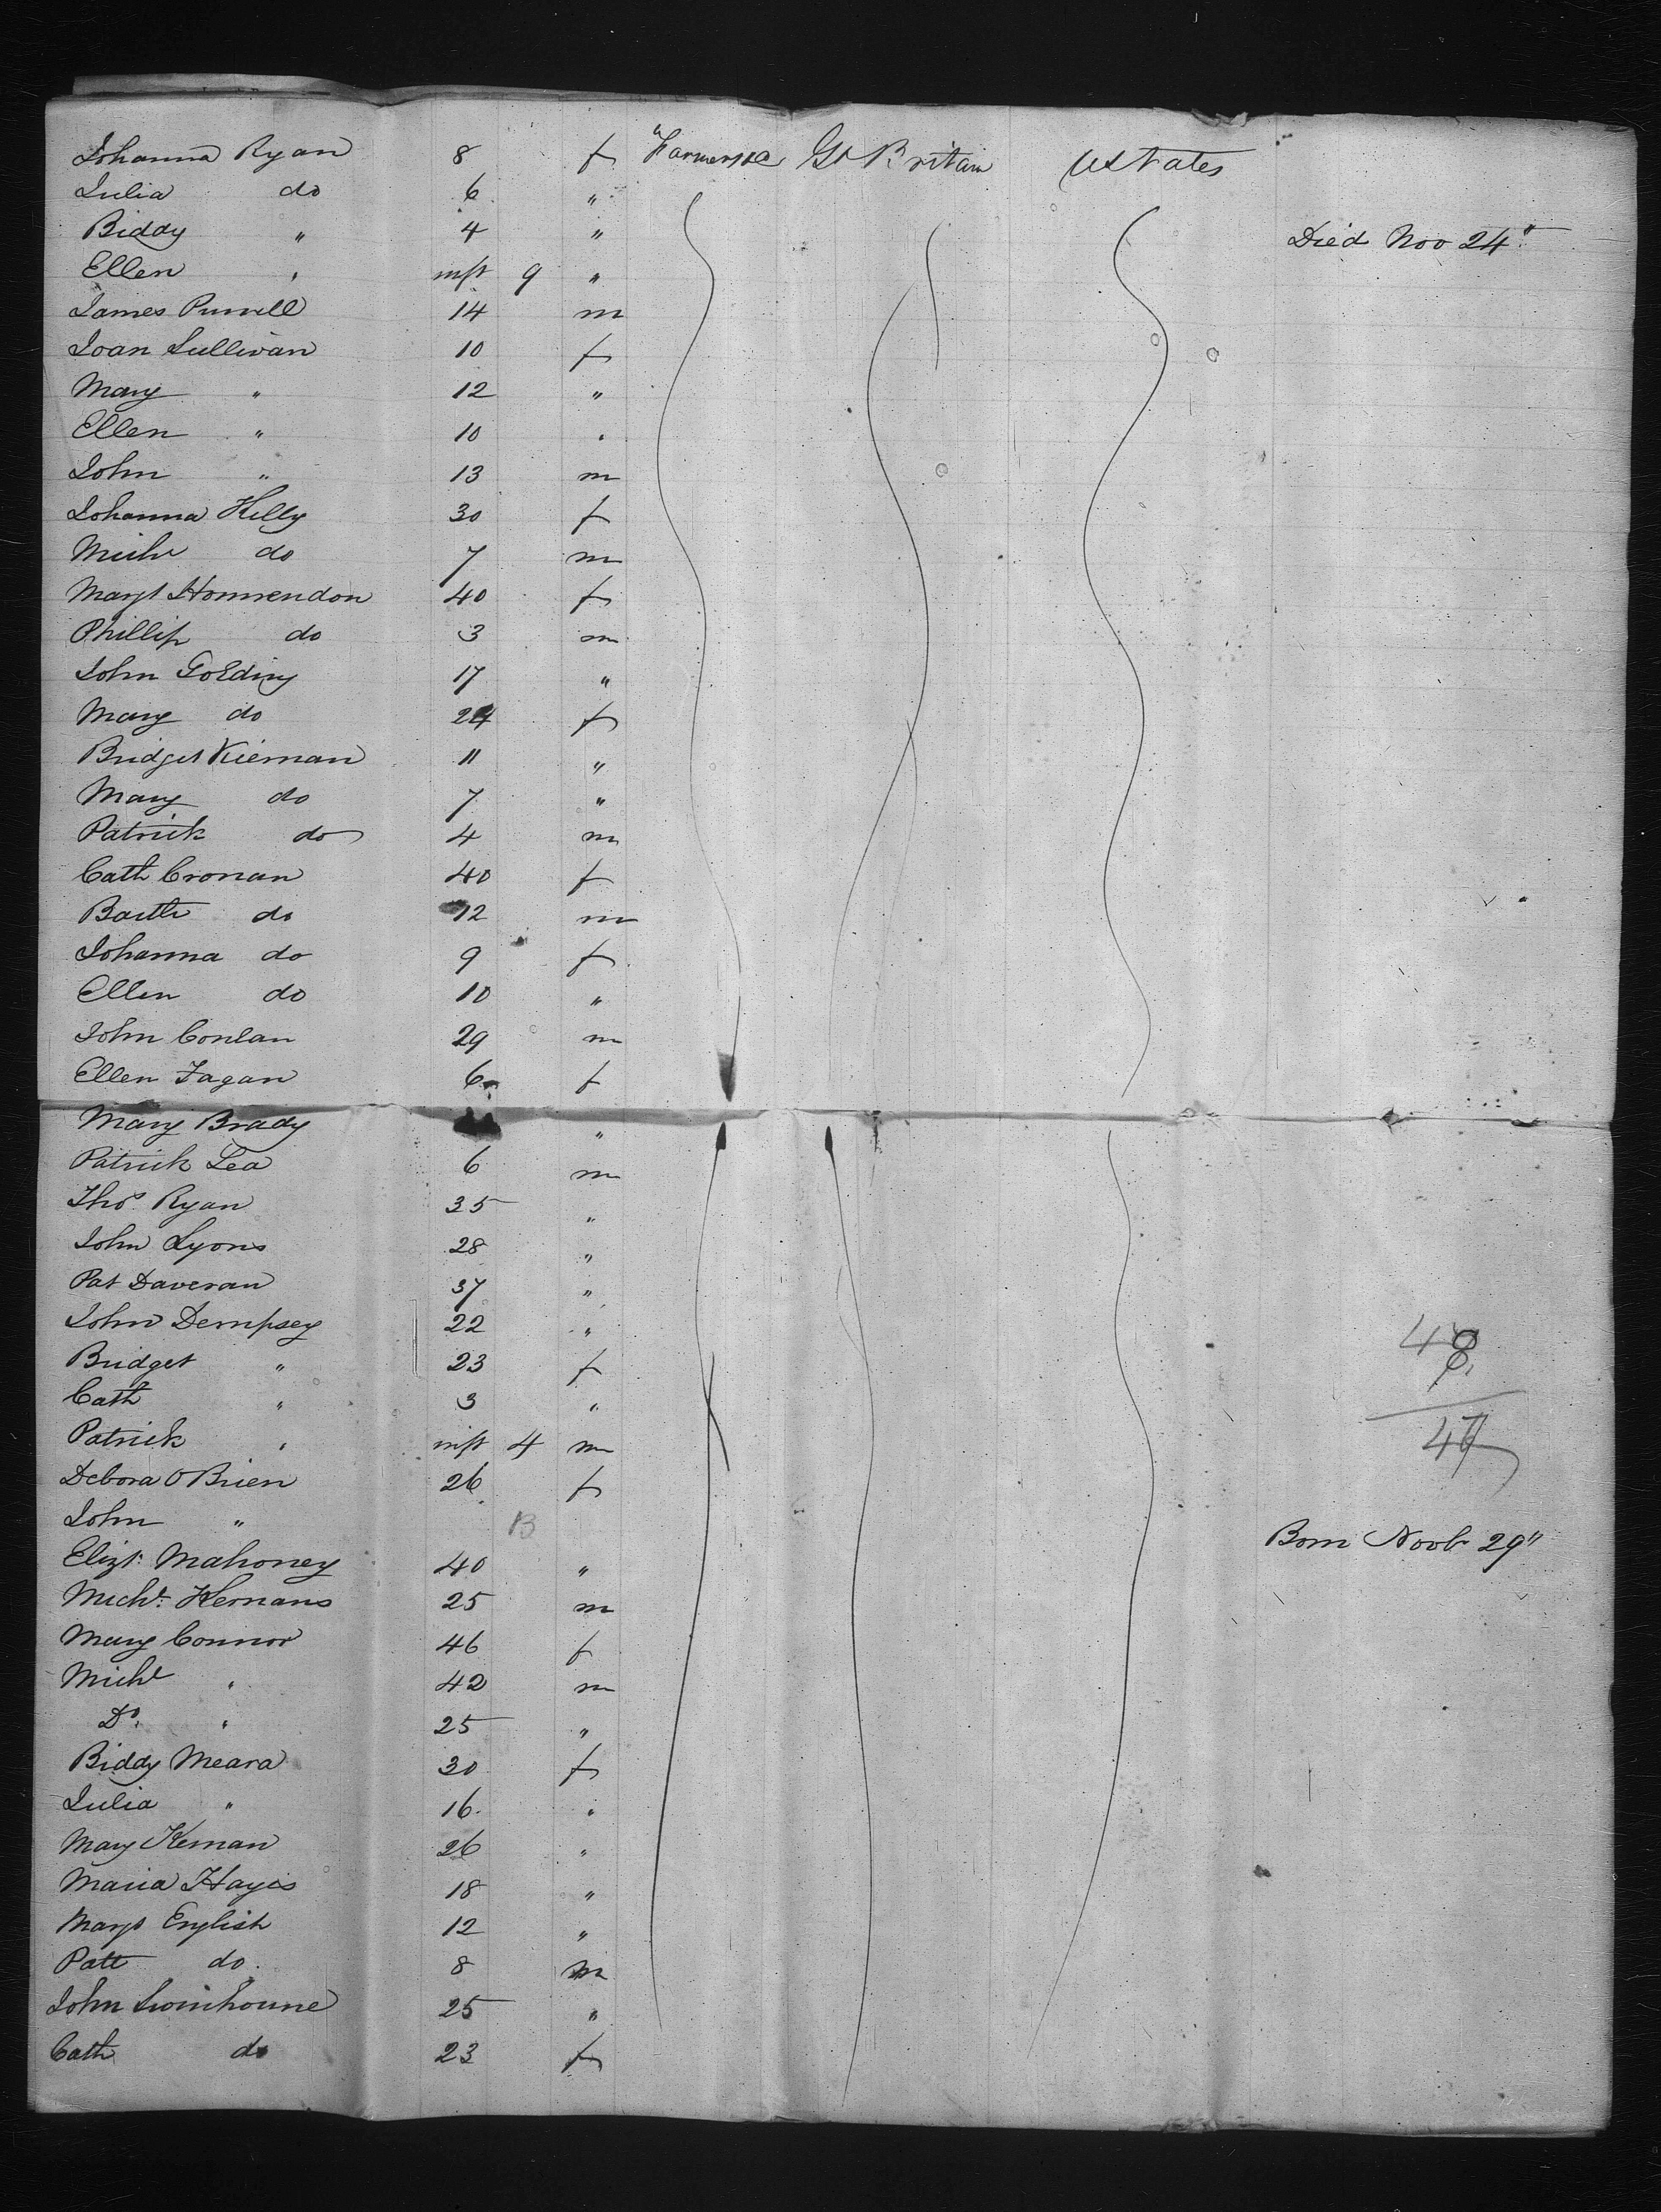 Johanna Ryan 8 f "Farmers &c Gt Britain U States
Julia do 6 "
Biddy " 4 " Died Nov 24"
Ellen " inft 9 "
James Purcell 14 m
Joan Sullivan 10 f
Mary " 12 "
Ellen " 10 "
John " 13 m
Johanna Kelly 30 f
Michl do 7 m
Margt 40 f
Phillip do 3 m
John Golding 17 "
Mary do 24 f
Bridget Kiernan 11 "
Mary do 7 "
Patrick do 4 m
Cath Cronan 40 f
Bartle do 12 m
Johanna do 9 f
Ellen do 10 "
John Conlan 29 m
Ellen Fagan 6 f
Mary Brady "
Patrick Lea 6 m
Thos Ryan 35 "
John Lyons 28 "
Pat Daveran 37 "
John Dempsey 22 "
Bridget " 23 f
Cath " 3 "
Patrick " inft 4 m
Debora O Brien 26 f
John " B Born Novbr 29"
Elizt: Mahoney 40 "
Michl: Kernans 25 m
Mary Connor 46 f
Michl " 42 m
Do. " 25 "
Biddy Meara 30 f
Julia " 16. "
Mary Kernan 26 "
Maria Hayes 18 "
Margt English 12 "
Patt do. 8 m
John 25 "
Cath do 23 f